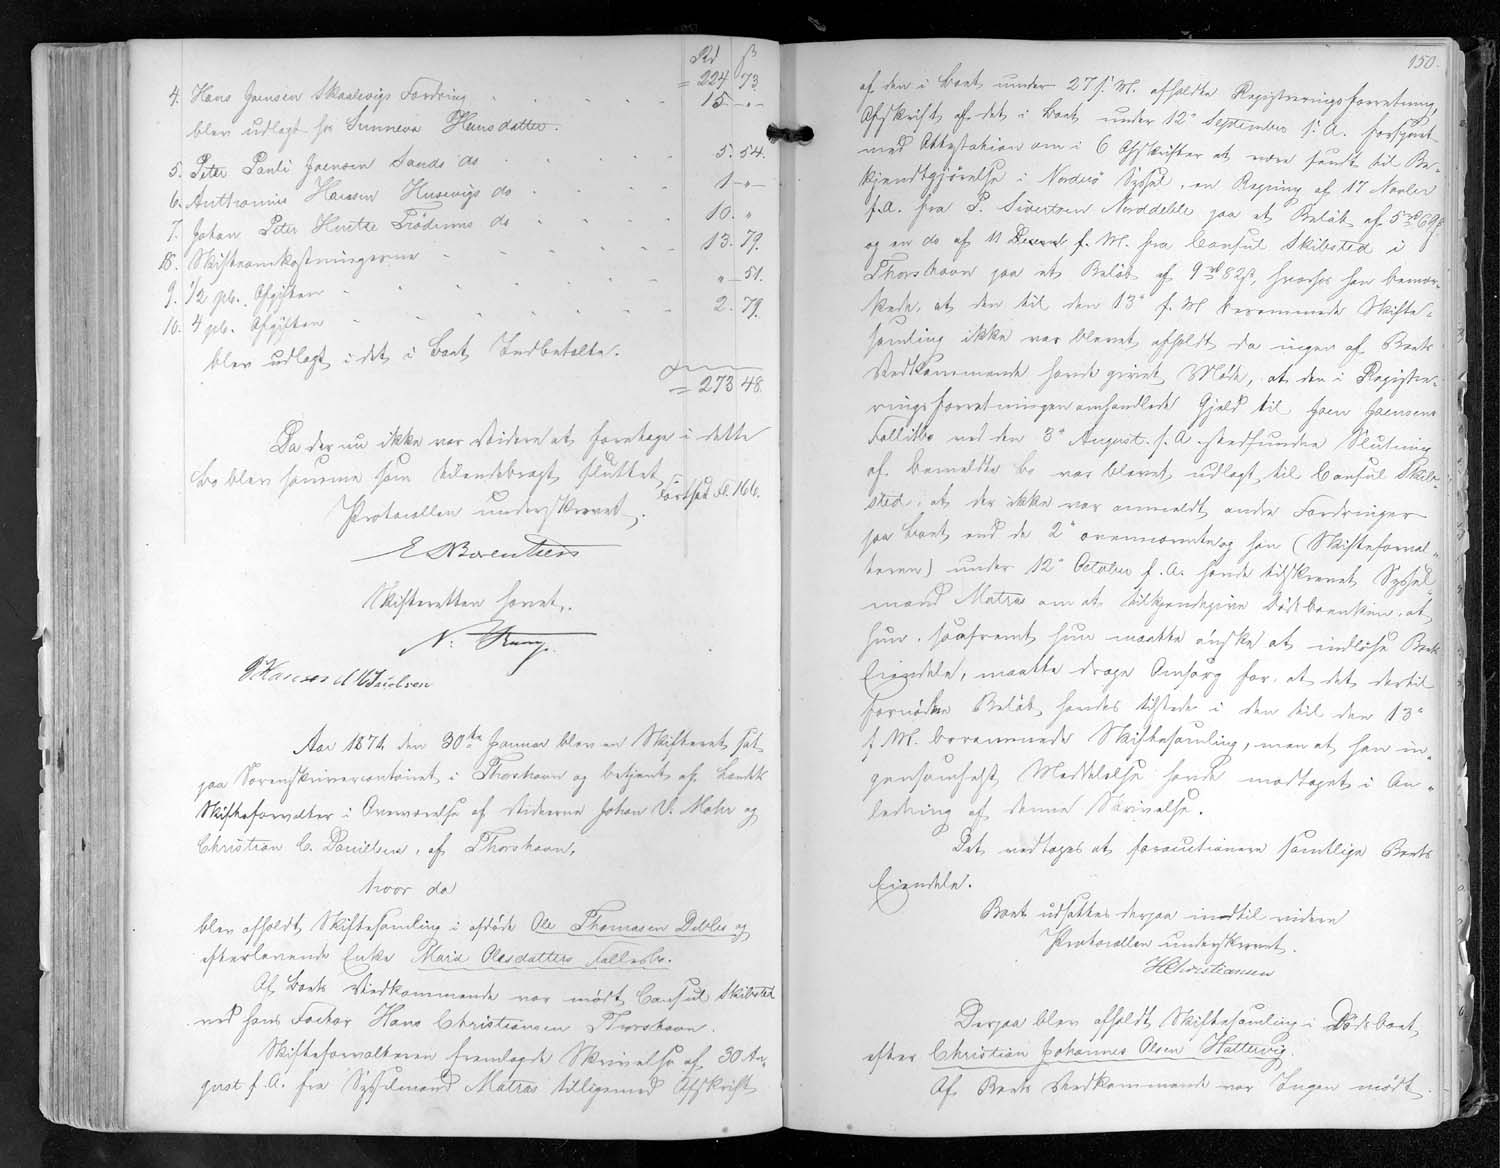 Rd β
= 224 73
4. Hans Joensen Skaalevigs Fordring . . . . . 15 - " -
blev udlagt hos Sunneva Hansdatter.
5. Peter Pauli Joensen Sands do . . . . . 5. 54.
6. Anthonius Hansen Husevigs do . . . . 1 - " -
7. Johan Peter Hentze do . . . . 10. "
8. Skifteomkostningerne . . . . . 13. 79.
9. 1/2 pC. Afgiften . . . . . " - 51.
10. 4 pC. Afgiften . . . . . 2. 79.
blev udlagt i det i Boet Indbetalte.
= 273 48.
Da der nu ikke var videre at foretage i dette
Bo blev samme som tilendebragt sluttet.
Fortsat Fl. 166.
Protocollen underskrevet.
E Lorentzen
Skifteretten hævet.
N.
Jacobsen
Aar 1874 den 30te Januar blev en Skifteret sat
paa Sorenskrivercontoiret i Thorshavn og betjent af Landets
Skifteforvalter i Overværelse af Vidnerne Johan V. Mohr og
Christian C. Danielsen, af Thorshavn,
hvor da
blev afholdt Skiftesamling i afdøde Ole Thomasen Debles og
efterlevende Enke Maria Olesdatters Fællesbo.
Af Boets Vedkommende var mødt Consul Skibsted
ved hans Factor Hans Christiansen Thorshavn.
Skifteforvalteren fremlagde Skrivelse af 30 Au-
gust f. A. fra Sysselmand Matras tilligemed Afskrift
150.
af den i Boet under 27 s. M. afholdte Registreringsforretning,
Afskrift af det i Boet under 12te September f. A. forsynet
med Attestation om i 6 Afskrifter at være sendt til Be-
kjendtgjørelse i Norderø Syssel, en Regning af 17 Novbr
f. A. fra P. Sivertsen Norddeble paa et Beløb af 5 rd 69 β
og en do af 11 Decemb f. M. fra Consul Skibsted i
Thorshavn paa et Beløb af 9 rd 82 β, hvorhos han bemær-
kede, at den til den 13de f. M. berammede Skifte-
samling ikke var blevet afholdt da ingen af Boets
Vedkommende havde givet Møde, at den i Registre-
ringsforretningen omhandlede Gjæld til Joen Joensens
Fallitbo ved den 3die August f. A. stedfundne Slutning
af bemeldte Bo var blevet udlagt til Consul Skib-
sted, at der ikke var anmeldt andre Fordringer
paa Boet end de 2de ovennævnte og han (Skifteforval-
teren) under 12te October f. A. havde tilskrevet Syssel-
mand Matras om at tilkjendegive Dødsboenken, at
hun, saafremt hun maatte ønske at indløse Boets
Eiendele, maatte drage Omsorg for, at det dertil
fornødne Beløb havdes tilstede i den til den 13de
f. M. berammede Skiftesamling, men at han in-
gensomhelst Meddelelse havde modtaget i An-
ledning af denne Skrivelse.
Det vedtoges at forauctionere samtlige Boets
Eiendele.
Boet udsattes derpaa indtil videre
Protocollen underskrevet.
HChristiansen
Derpaa blev afholdt Skiftesamling i Dødsboet
efter Christian Johannes Olsen Hattervig.
Af Boets Vedkommende var Ingen mødt.